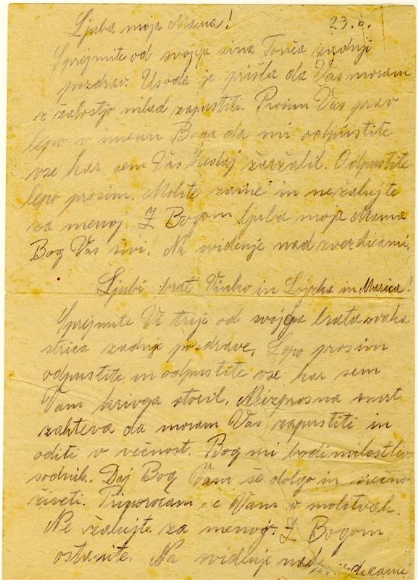 Ljuba moja Mama! 23.9.
Sprejmite od svojga sina Tonča zadnji
pozdrav. Usoda je prišla da Vas moram
z žalostjo mlad zapustiti. Prosim Vas prav
lepo v imenu Boga da mi odpustite
vse kar sem Vas kedaj žaržalil. Odpustite
lepo prosim. Molite zame in ne žalujte
za menoj. Z Bogom ljuba moja Mama
Bog Vas živi. Na svidenje nad zvezdicami.
Ljubi brat Vinko in Lojzka in Marica!
Sprejmite Vi trije od svojga brata svaka
strica zadnje pozdrave. Lepo prosim
odpustite in odpustite vse kar sem
Vam krivega storil. Neizprosna smrt
zahteva da moram Vas zapustiti in
oditi v večnost. Bog mi bodi milostlivi
sodnik. Daj Bog Vam še dolgo in srečno
živeti. Priporočam se Vam v molitvah.
Ne žalujte za menoj. Z Bogom
ostanite. Na svidenje nad